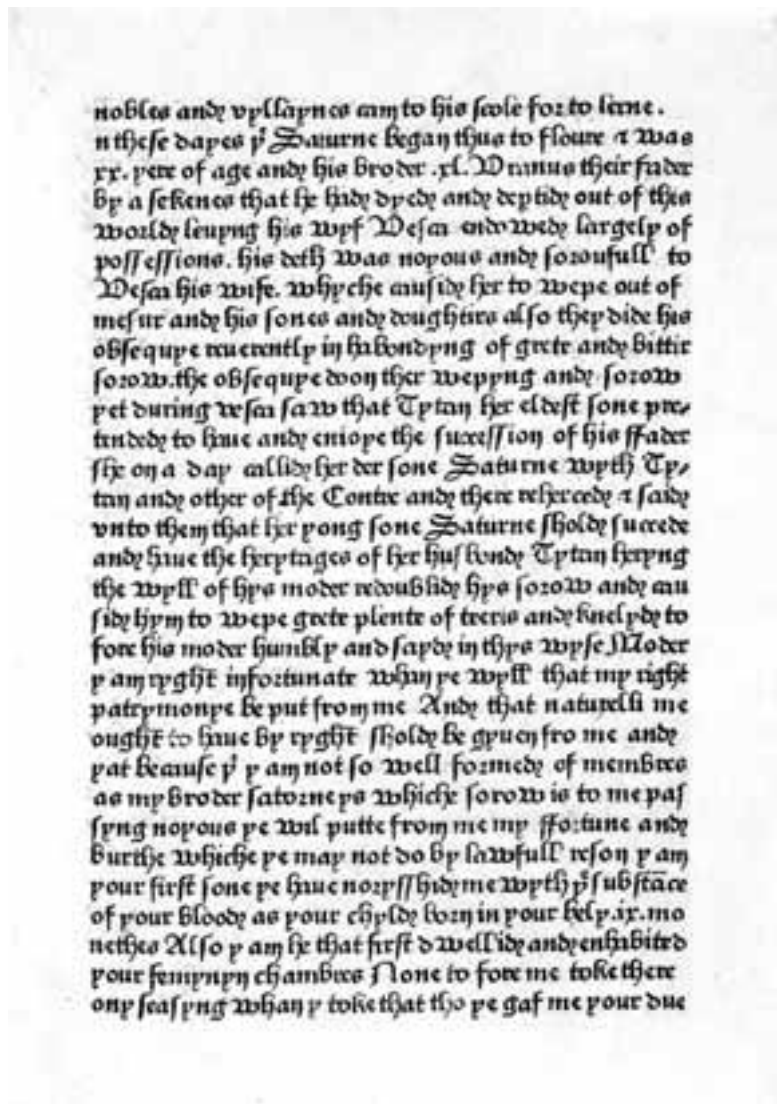 nobles and vyllaynes cam to his scole for to lerne.
n these dayes yͭ Saturne began thus to floure ⁊ was
xx. yere of age and his broder .xl. Vranus their fader
by a sekenes that he had dyed and deptid out of this
world leuyng his wyf Vesca endowed largely of
possessions. his deth was noyous and soroufull to
Vesca his wife. whyche causid her to wepe out of
mesur and his sones and doughtirs also they dide his
obsequye reuerently in habondyng of grete and bittir
sorow.the obsequye doon ther wepyng and sorow
yet during vesca saw that Tytan her eldest sone pre⸗
tended to haue and enioye the succession of his ffader
she on a day callid her der sone Saturne wyth Ty⸗
tan and other of the Contre and there reherced ⁊ said
vnto them that her yong sone Saturne shold succede
and haue the herytages of her husbond Tytan heryng
the wyll of hys moder redoublid hys sorow and cau
sid hym to wepe grete plente of teeris and knelyd to
fore his moder humbly and sayd in thys wyse Moder
y am ryght infortunate whan ye wyll that my right
patrymonye be put from me And that naturelli me
ought to haue by ryght shold be gyuen fro me and
yat because yͭ y am not so well formed of membres
as my broder satorne ys whiche sorow is to me pas
syng noyous ye wil putte from me my ffortune and
burthe whiche ye may not do by lawfull reson y am
your first sone ye haue norysshid me wyth yͤ substāce
of your blood as your chyld born in your bely .ix. mo
nethes Also y am he that first dwellid and enhabited
your femynyn chambres None to fore me toke there
ony seasyng whan y toke that tho ye gaf me your due